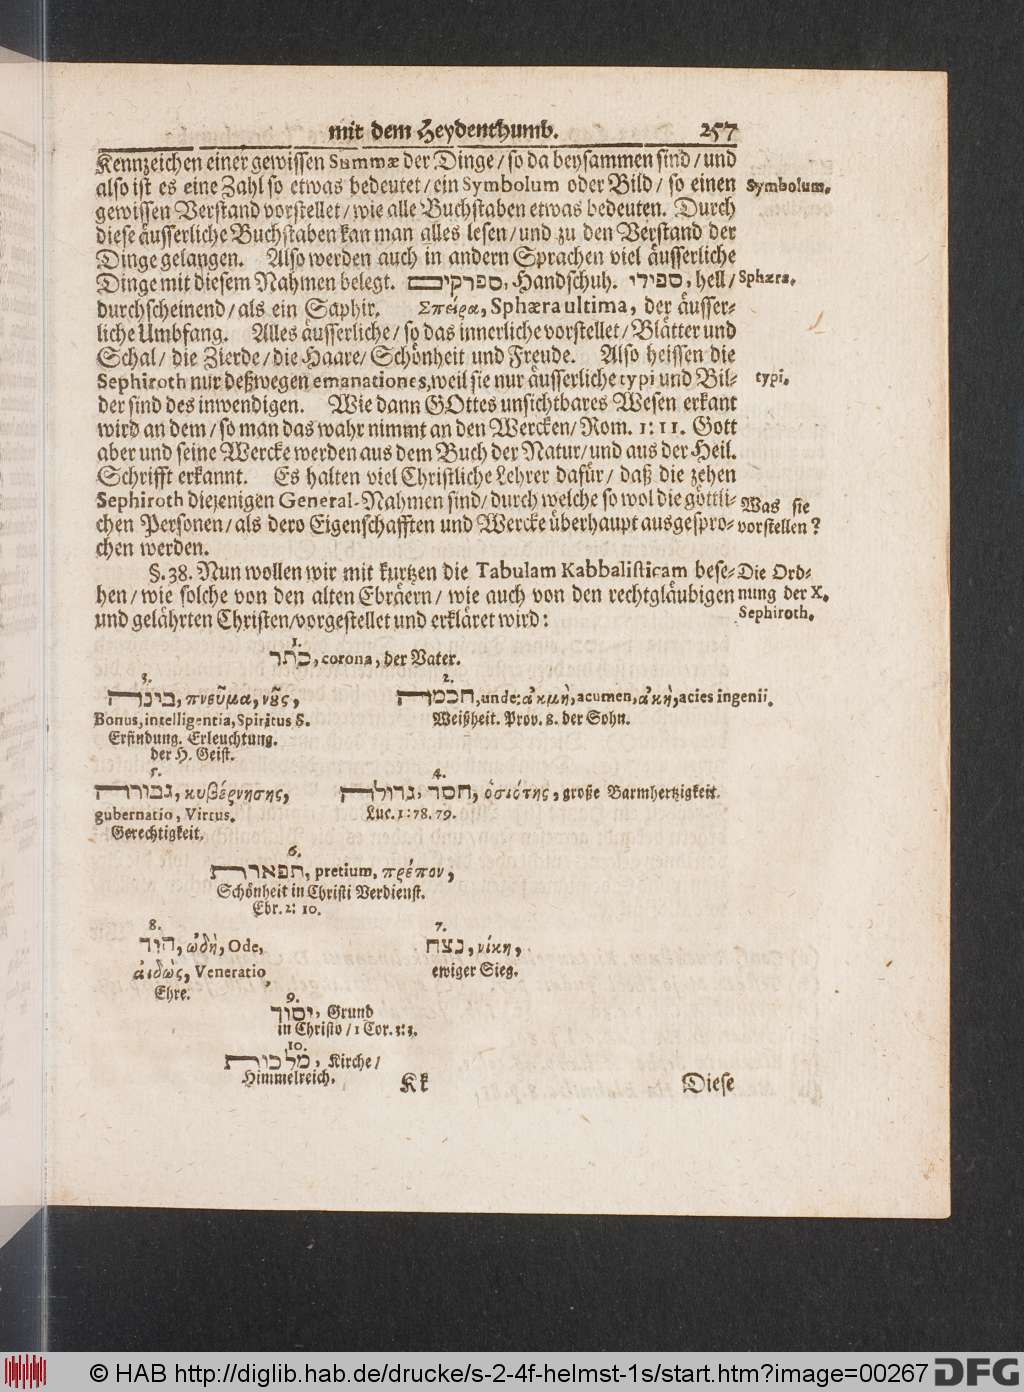 mit dem Heydenthumb. 257
Kennzeichen einer gewissen Summæ der Dinge / so da beysammen sind / und
also ist es eine Zahl so etwas bedeutet / ein Symbolum oder Bild / so einen
Symbolum.
gewissen Verstand vorstellet / wie alle Buchstaben etwas bedeuten. Durch
diese äusserliche Buchstaben kan man alles lesen / und zu den Verstand der
Dinge gelangen. Also werden auch in andern Sprachen viel äusserliche
Dinge mit diesem Nahmen belegt. ספרקים, Handschuh. ספירי, hell /
Sphæra.
durchscheinend / als ein Saphir. Σπείρα, Sphæra ultima, der äusser-
liche Umbfang. Alles äusserliche / so das innerliche vorstellet / Blätter und
Schal / die Zierde / die Haare / Schönheit und Freude. Also heissen die
Sephiroth nur deßwegen emanationes, weil sie nur äusserliche typi und Bil-
typi.
der sind des inwendigen. Wie dann GOttes unsichtbares Wesen erkant
wird an dem / so man das wahr nimmt an den Wercken / Rom. 1: 11. Gott
aber und seine Wercke werden aus dem Buch der Natur / und aus der Heil.
Schrifft erkannt. Es halten viel Christliche Lehrer dafür / daß die zehen
Sephiroth diejenigen General-Nahmen sind / durch welche so wol die göttli-
Was sie
chen Personen / als dero Eigenschafften und Wercke überhaupt ausgespro-
vorstellen?
chen werden.
§. 38. Nun wollen wir mit kurtzen die Tabulam Kabbalisticam bese-
Die Ord-
hen / wie solche von den alten Ebräern / wie auch von den rechtgläubigen
nung der X.
und gelährten Christen / vorgestellet und erkläret wird:
Sephiroth.
1.
כתר, corona, der Vater.
3. 2.
בינה, πνεῦμα, νοῦς, חכמה, unde: ἀκμὴ, acumen, ἀκὴ, acies ingenii.
Bonus, intelligentia, Spiritus S. Weißheit. Prov. 8. der Sohn.
Erfindung. Erleuchtung.
der H. Geist.
5. 4.
גבורה, κυβέρνησης, גדולה, חסד, ὁσιότης, große Barmhertzigkeit.
gubernatio, Virtus. Luc. 1: 78. 79.
Gerechtigkeit.
6.
תפארת, pretium, πρέπον,
Schönheit in Christi Verdienst.
Ebr. 2: 10.
8. 7.
הוד, ᾠδὴ, Ode, נצח, νίκη,
αἰδὼς, Veneratio, ewiger Sieg.
Ehre.
9.
יסוד, Grund
in Christo / 1 Cor. 3: 3.
10.
מלכות, Kirche /
Himmelreich.
Kk Diese
© HAB http://diglib.hab.de/drucke/s-2-4f-helmst-1s/start.htm?image=00267 DFG